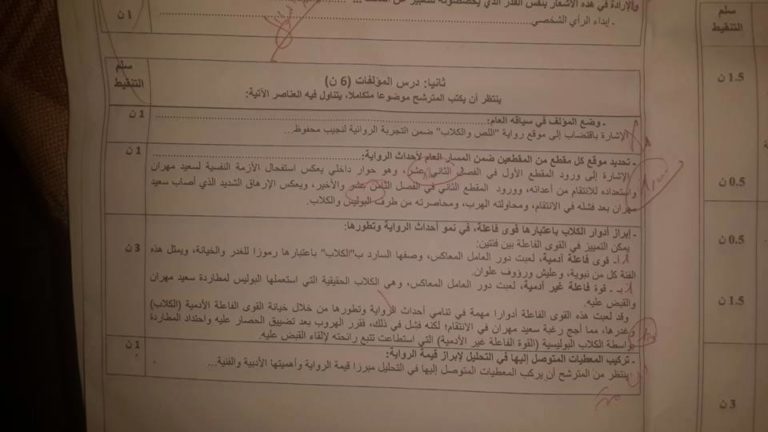 الإرادة في هذه الأشعار بنفس القدر الذي يخصصونه للتعبير عن
- إبداء الرأي الشخصي
1 ن
سلم التنقيط
1.5 ن
0.5 ن
0.5 ن
1.5 ن
3 ن
ثانيا: درس المؤلفات (6 ن)
ينتظر أن يكتب المترشح موضوعا متكاملا، يتناول فيه العناصر الآتية:
سلم التنقيط
- وضع المؤلف في سياقه العام:
1 ن
الإشارة باقتضاب إلى موقع رواية "اللص والكلاب" ضمن التجربة الروائية لنجيب محفوظ...
- تحديد موقع كل مقطع من المقطعين ضمن المسار العام لأحداث الرواية:
1 ن
الإشارة إلى ورود المقطع الأول في الفصل الثاني عشر، وهو حوار داخلي يعكس استفحال الأزمة النفسية لسعيد مهران
واستعداده للانتقام من أعدائه، وورود المقطع الثاني في الفصل الثامن عشر والأخير، ويعكس الإرهاق الشديد الذي أصاب سعيد
مهران بعد فشله في الانتقام، ومحاولته الهرب، ومحاصرته من طرف البوليس والكلاب.
- إبراز أدوار الكلاب باعتبارها قوى فاعلة، في نمو أحداث الرواية وتطورها:
يمكن التمييز في القوى الفاعلة بين فئتين:
3 ن
أ- قوى فاعلة آدمية، لعبت دور العامل المعاكس، وصفها السارد ب"الكلاب" باعتبارها رموزا للغدر والخيانة، ويمثل هذه
الفئة كل من نبوية، وعليش ورؤوف علوان.
ب- قوة فاعلة غير آدمية، لعبت دور العامل المعاكس، وهي الكلاب الحقيقية التي استعملها البوليس لمطاردة سعيد مهران
والقبض عليه.
وقد لعبت هذه القوى الفاعلة أدوارا مهمة في تنامي أحداث الرواية وتطورها من خلال خيانة القوى الفاعلة الآدمية (الكلاب)
وغدرها، مما أجج رغبة سعيد مهران في الانتقام؛ لكنه فشل في ذلك، فقرر الهروب بعد تضييق الحصار عليه واحتداد المطاردة
بواسطة الكلاب البوليسية (القوة الفاعلة غير الآدمية) التي استطاعت تتبع رائحته لإلقاء القبض عليه.
- تركيب المعطيات المتوصل إليها في التحليل لإبراز قيمة الرواية:
1 ن
ينتظر من المترشح أن يركب المعطيات المتوصل إليها في التحليل مبرزا قيمة الرواية وأهميتها الأدبية والفنية.